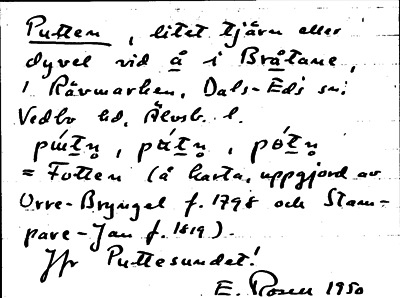 Putten, litet tjärn eller
dyvel vid å i Bråtane,
i Rävmarken, Dals-Eds sn:
Vedbo hd, Älvsb. l.
pútn̥, pátn̥, pótn̥
= Fotten (å karta, uppgjord av
Orre-Bryngel f. 1798 och Stam-
pare-Jan f. 1819).
Jfr Puttesundet!
E. Rosen 1950